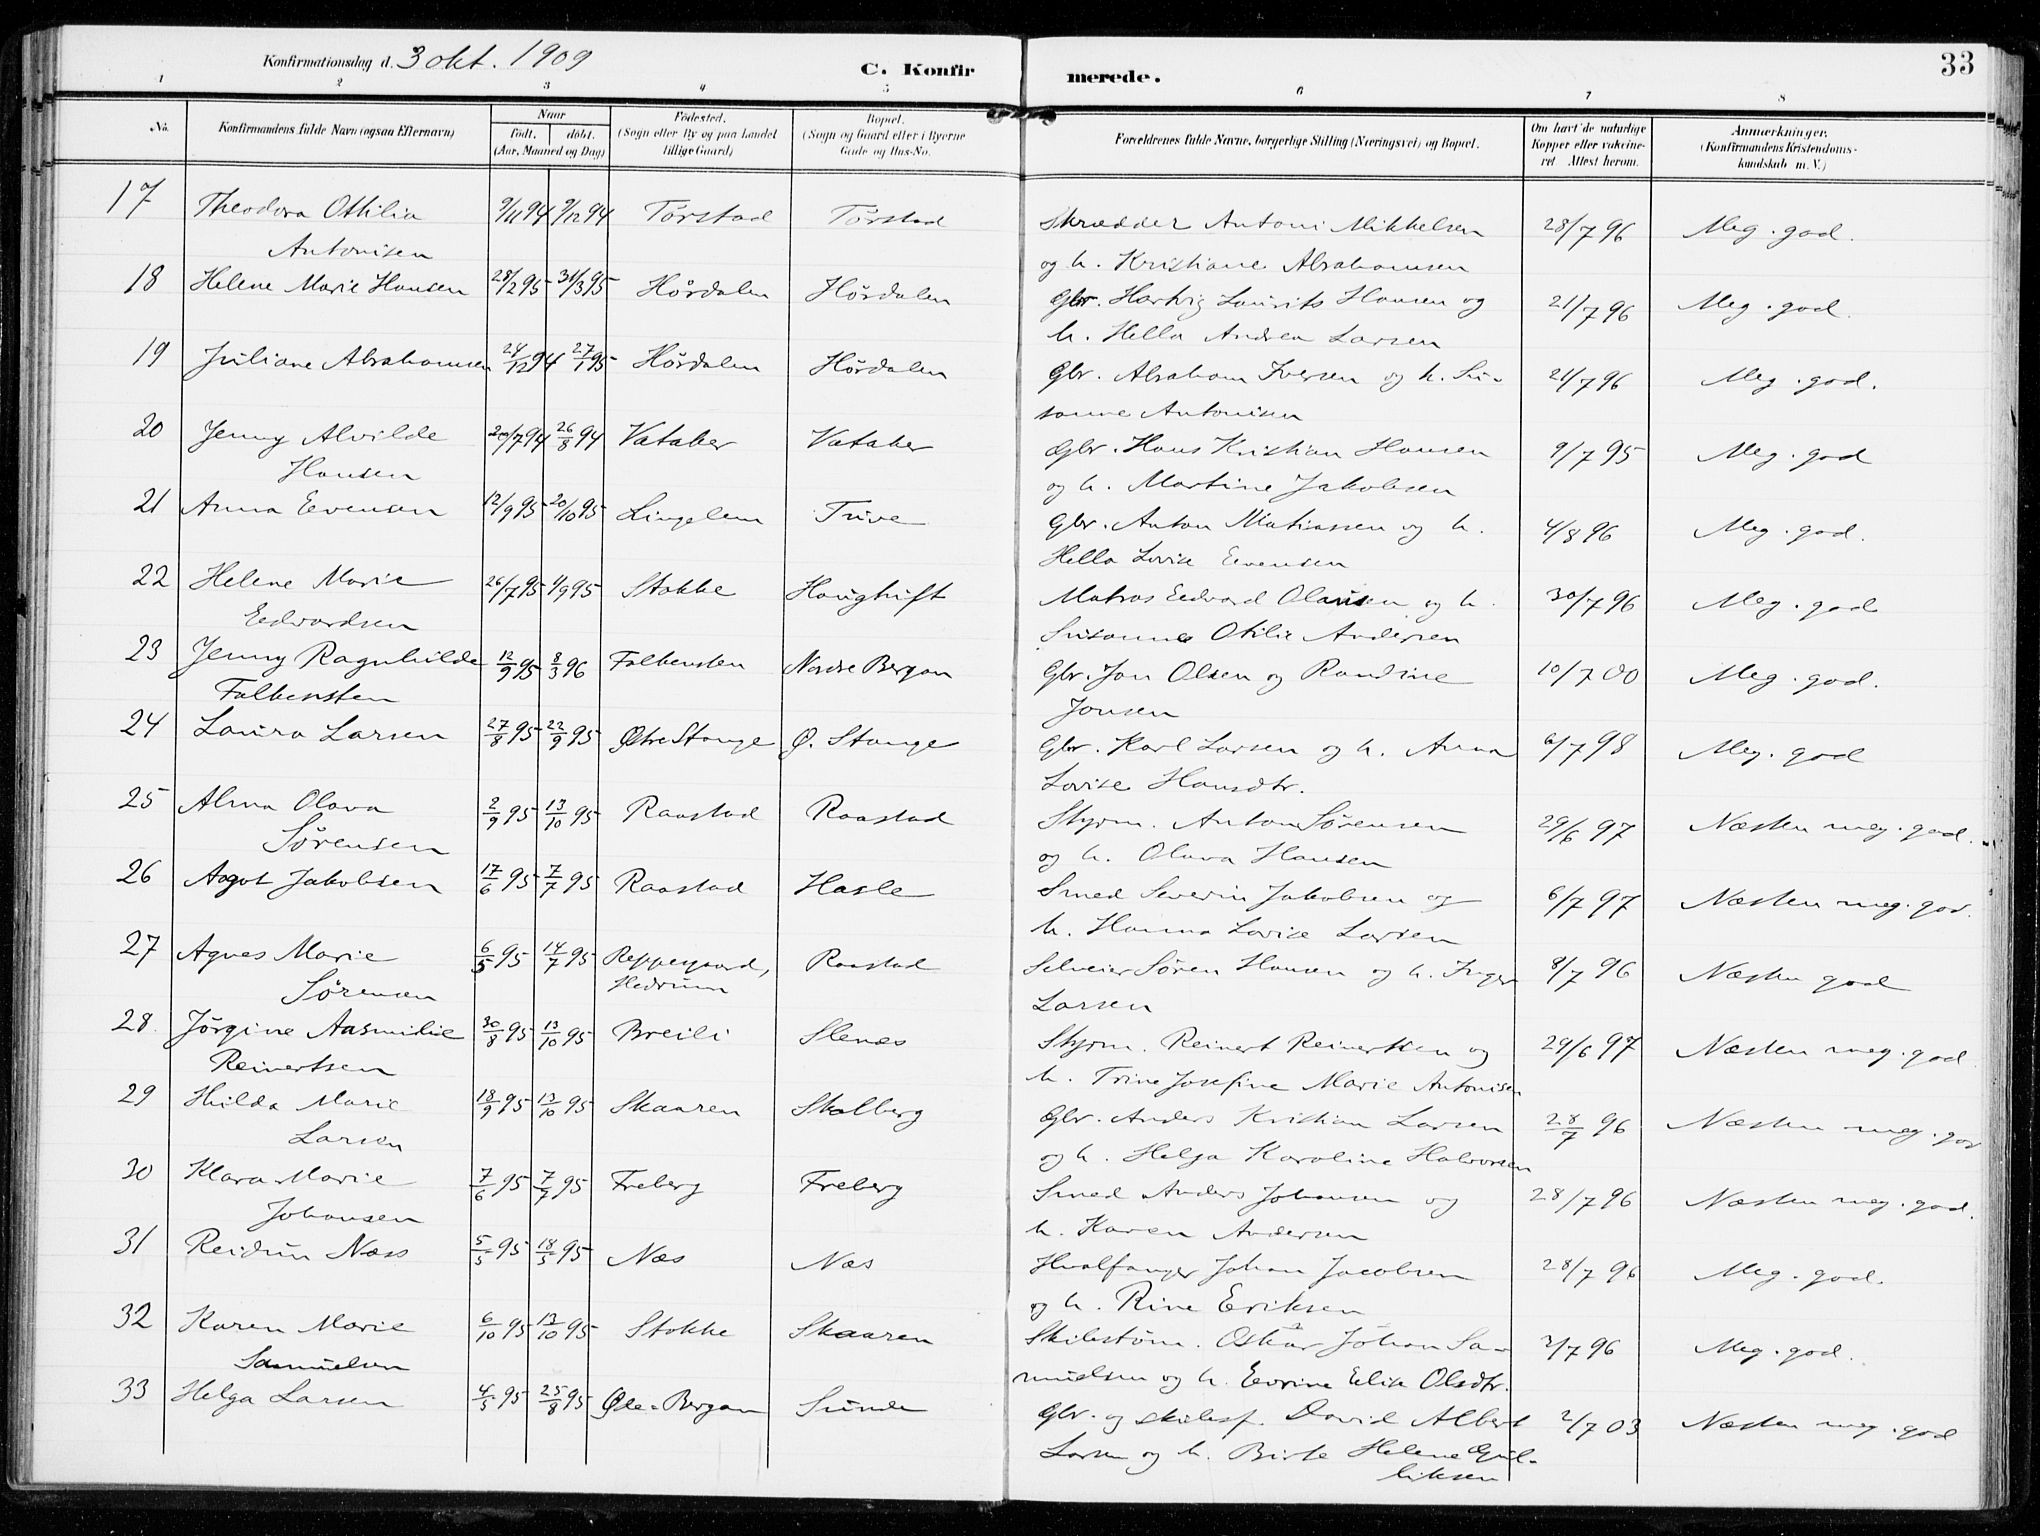 33
Konfirmationsdag d. 3 okt. 1909
C. Konfirmerede.
1 2 3 4 5 6 7 8
No. Konfirmandens fulde Navn (ogsaa Efternavn) Naar født. døbt. (Aar, Maaned og Dag) Fødested. (Sogn eller By og paa Landet tillige Gaard) Bopæl. (Sogn og Gaard eller i Byerne Gade og Hus-No. Forældrenes fulde Navne, borgerlige Stilling (Næringsvei) og Bopæl. Om havt de naturlige Kopper eller vakcineret Attest herom. Anmærkninger. (Konfirmandens Kristendomskundskab m. V.)
17 Theodora Othilia 9/11 94 9/12 94 Tørstad Tørstad Skrædder Antoni Mikkelsen 28/7 96 Meg. god.
Antonisen og h. Kristiane Abrahamsen
18 Helene Marie Hansen 28/2 95 31/3 95 Hørdalen Hørdalen Gbr. Hartvig Laurits Hansen og 21/7 96 Meg. god.
h. Hella Andrea Larsen
19 Juliane Abrahamsen 24/12 94 27/1 95 Hørdalen Hørdalen Gbr. Abraham Iversen og h. Su- 21/7 96 Meg. god.
sanne Antonisen
20 Jenny Alvilde 20/7 94 26/8 94 Vataker Vataker Gbr. Hans Kristian Hansen 9/7 95 Meg. god
Hansen og h. Martine Jakobsen
21 Anna Evensen 12/9 95 20/10 95 Lingelem Tuve Gbr. Anton Matiassen og h. 4/8 96 Meg. god.
Hella Lovise Evensen
22 Helene Marie 26/7 95 1/9 95 Stokke Haugtuft Matros Edvard Olausen og h. 30/7 96 Meg. god
Edvardsen Susanne Otilie Andersen
23 Jenny Ragnhilde 12/9 95 8/3 96 Falkensten Nordre Bergan Gbr. Jon Olsen og Randine 10/7 00 Meg. god.
Falkensten Jonsen
24 Laura Larsen 27/8 95 22/9 95 Østre Stange Ø. Stange Gbr. Karl Larsen og h. Anna 6/7 98 Meg. god
Lovise Hansdtr.
25 Alma Olava 2/9 95 13/10 95 Raastad Raastad Skjøm. Anton Sørensen 29/6 97 Næsten meg. god.
Sørensen og h. Olava Hansen
26 Aagot Jakobsen 17/6 95 7/7 95 Raastad Hasle Smed Severin Jakobsen og 6/7 97 Næsten meg. god.
h. Hanna Lovise Larsen
27 Agnes Marie 6/5 95 14/7 95 Reppegaard, Raastad Selveier Søren Hansen og h. Inger 8/7 96 Næsten god
Sørensen Hedrum Larsen
28. Jørgine Aasmilie 30/8 95 13/10 95 Breili Slenes Skjøm. Reinert Reinertsen og 29/6 97 Næsten meg. god
Reinertsen h. Trine Josefine Marie Antonisen
29 Hilda Marie 18/9 95 13/10 95 Skaaren Skolberg Gbr. Anders Kristian Larsen 28/7 96 Næsten meg. god
Larsen og h. Helga Karoline Halvorsen
30 Klara Marie 7/6 95 7/7 95 Freberg Freberg Smed Anders Johansen og 28/7 96 Næsten meg. god.
Johansen h. Karen Andersen
31 Reidun Næss 5/5 95 18/5 95 Næs Næs Hvalfanger Johan Jacobsen 28/7 96 Meg. god.
og h. Rine Eriksen
32 Karen Marie 6/10 95 13/10 95 Stokke Skaaren Skibstøm. Oskar Johan Sa- 3/7 96 Meg. god.
Samuelsen muelsen og h. Evrine Elise Olsdtr.
33 Helga Larsen 4/5 95 25/8 95 Øde-Bergan Sunde Gbr. og skibsf. David Albert 2/7 03 Næsten meg. god
Larsen og h. Birte Helene Gul-
liksen